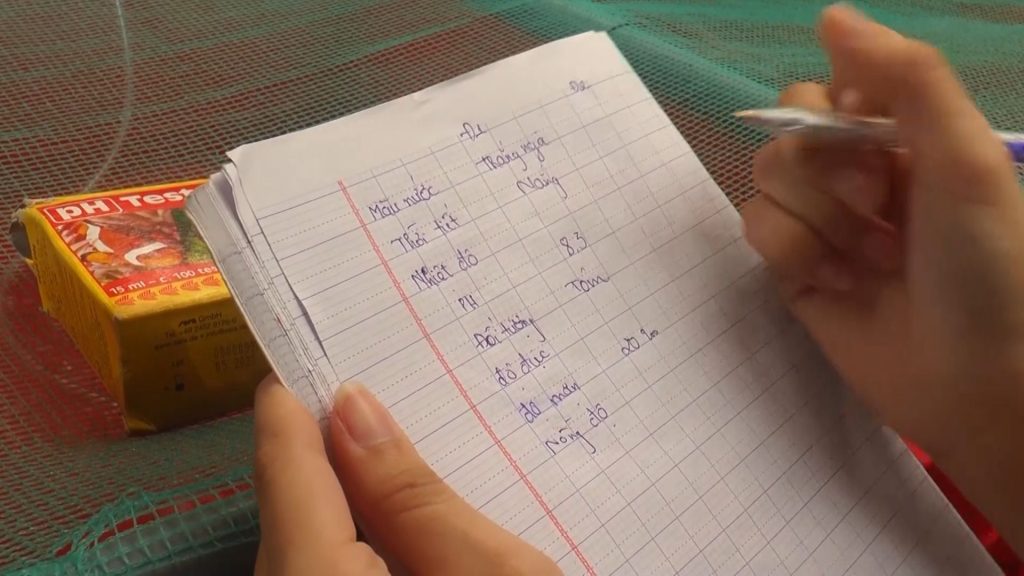 PH Test
15 ml - 100 test
Đ1
Đ2
Màu nước
trắng ngà
Thời tiết
Nắng
Nhiệt độ
PH
8.3
Đối tượng
Tôm
độ đục
độ mặn
20 ‰
Nồng độ